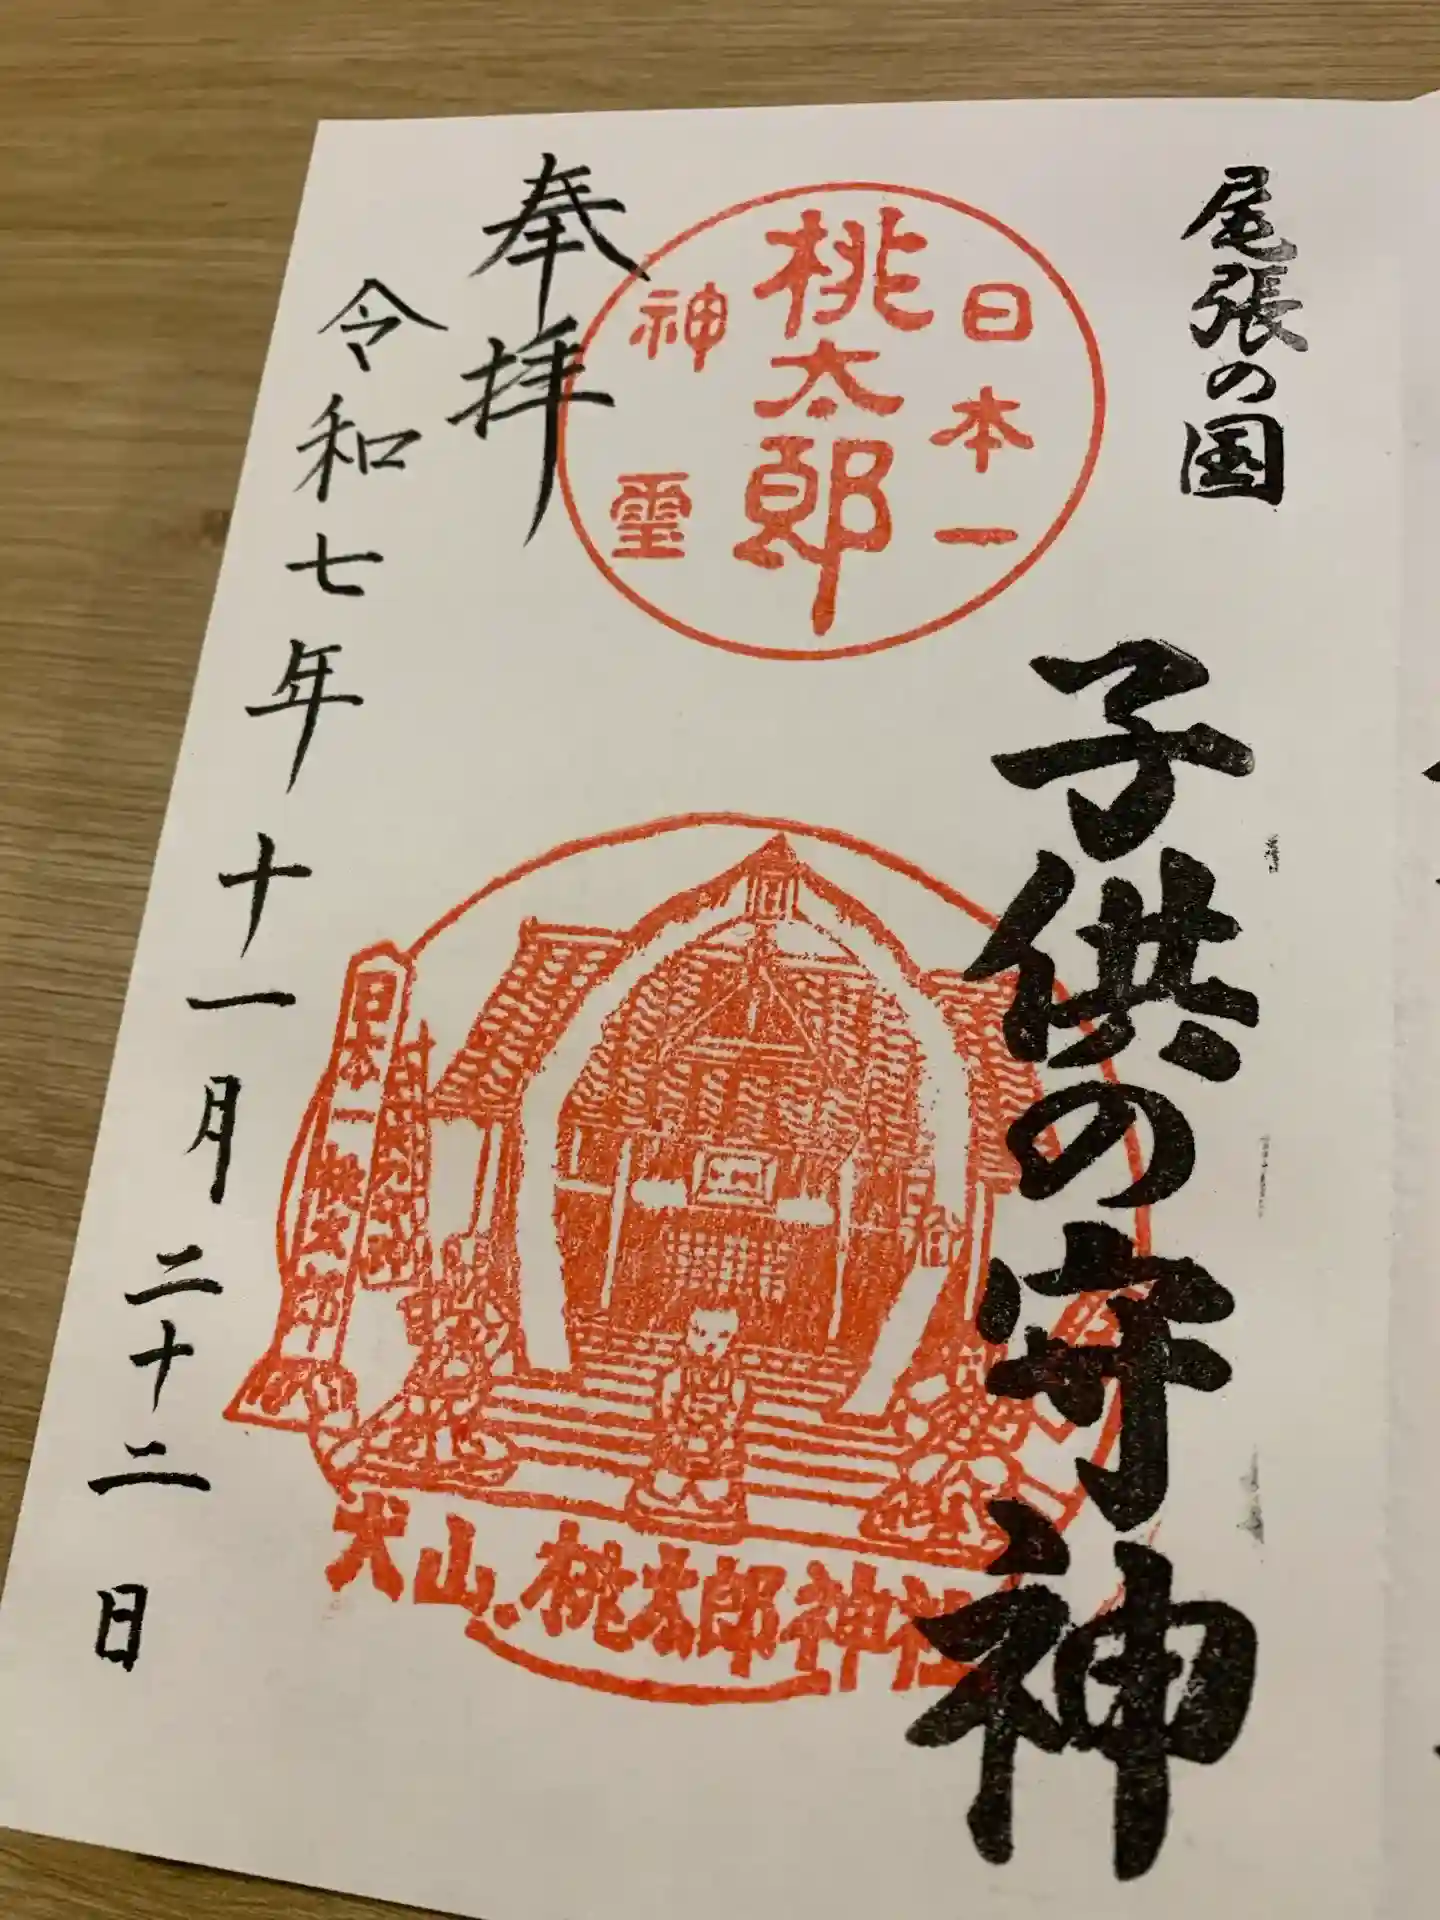 尾張の国
子供の守神
日本一
桃太郎
神霊
奉拝
日本一桃太郎
犬山.桃太郎神社
令和七年十一月二十二日